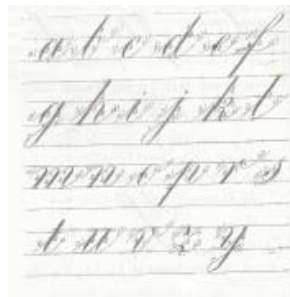 a b c d e f
g h i j k l
m n o p r s
t u v z y